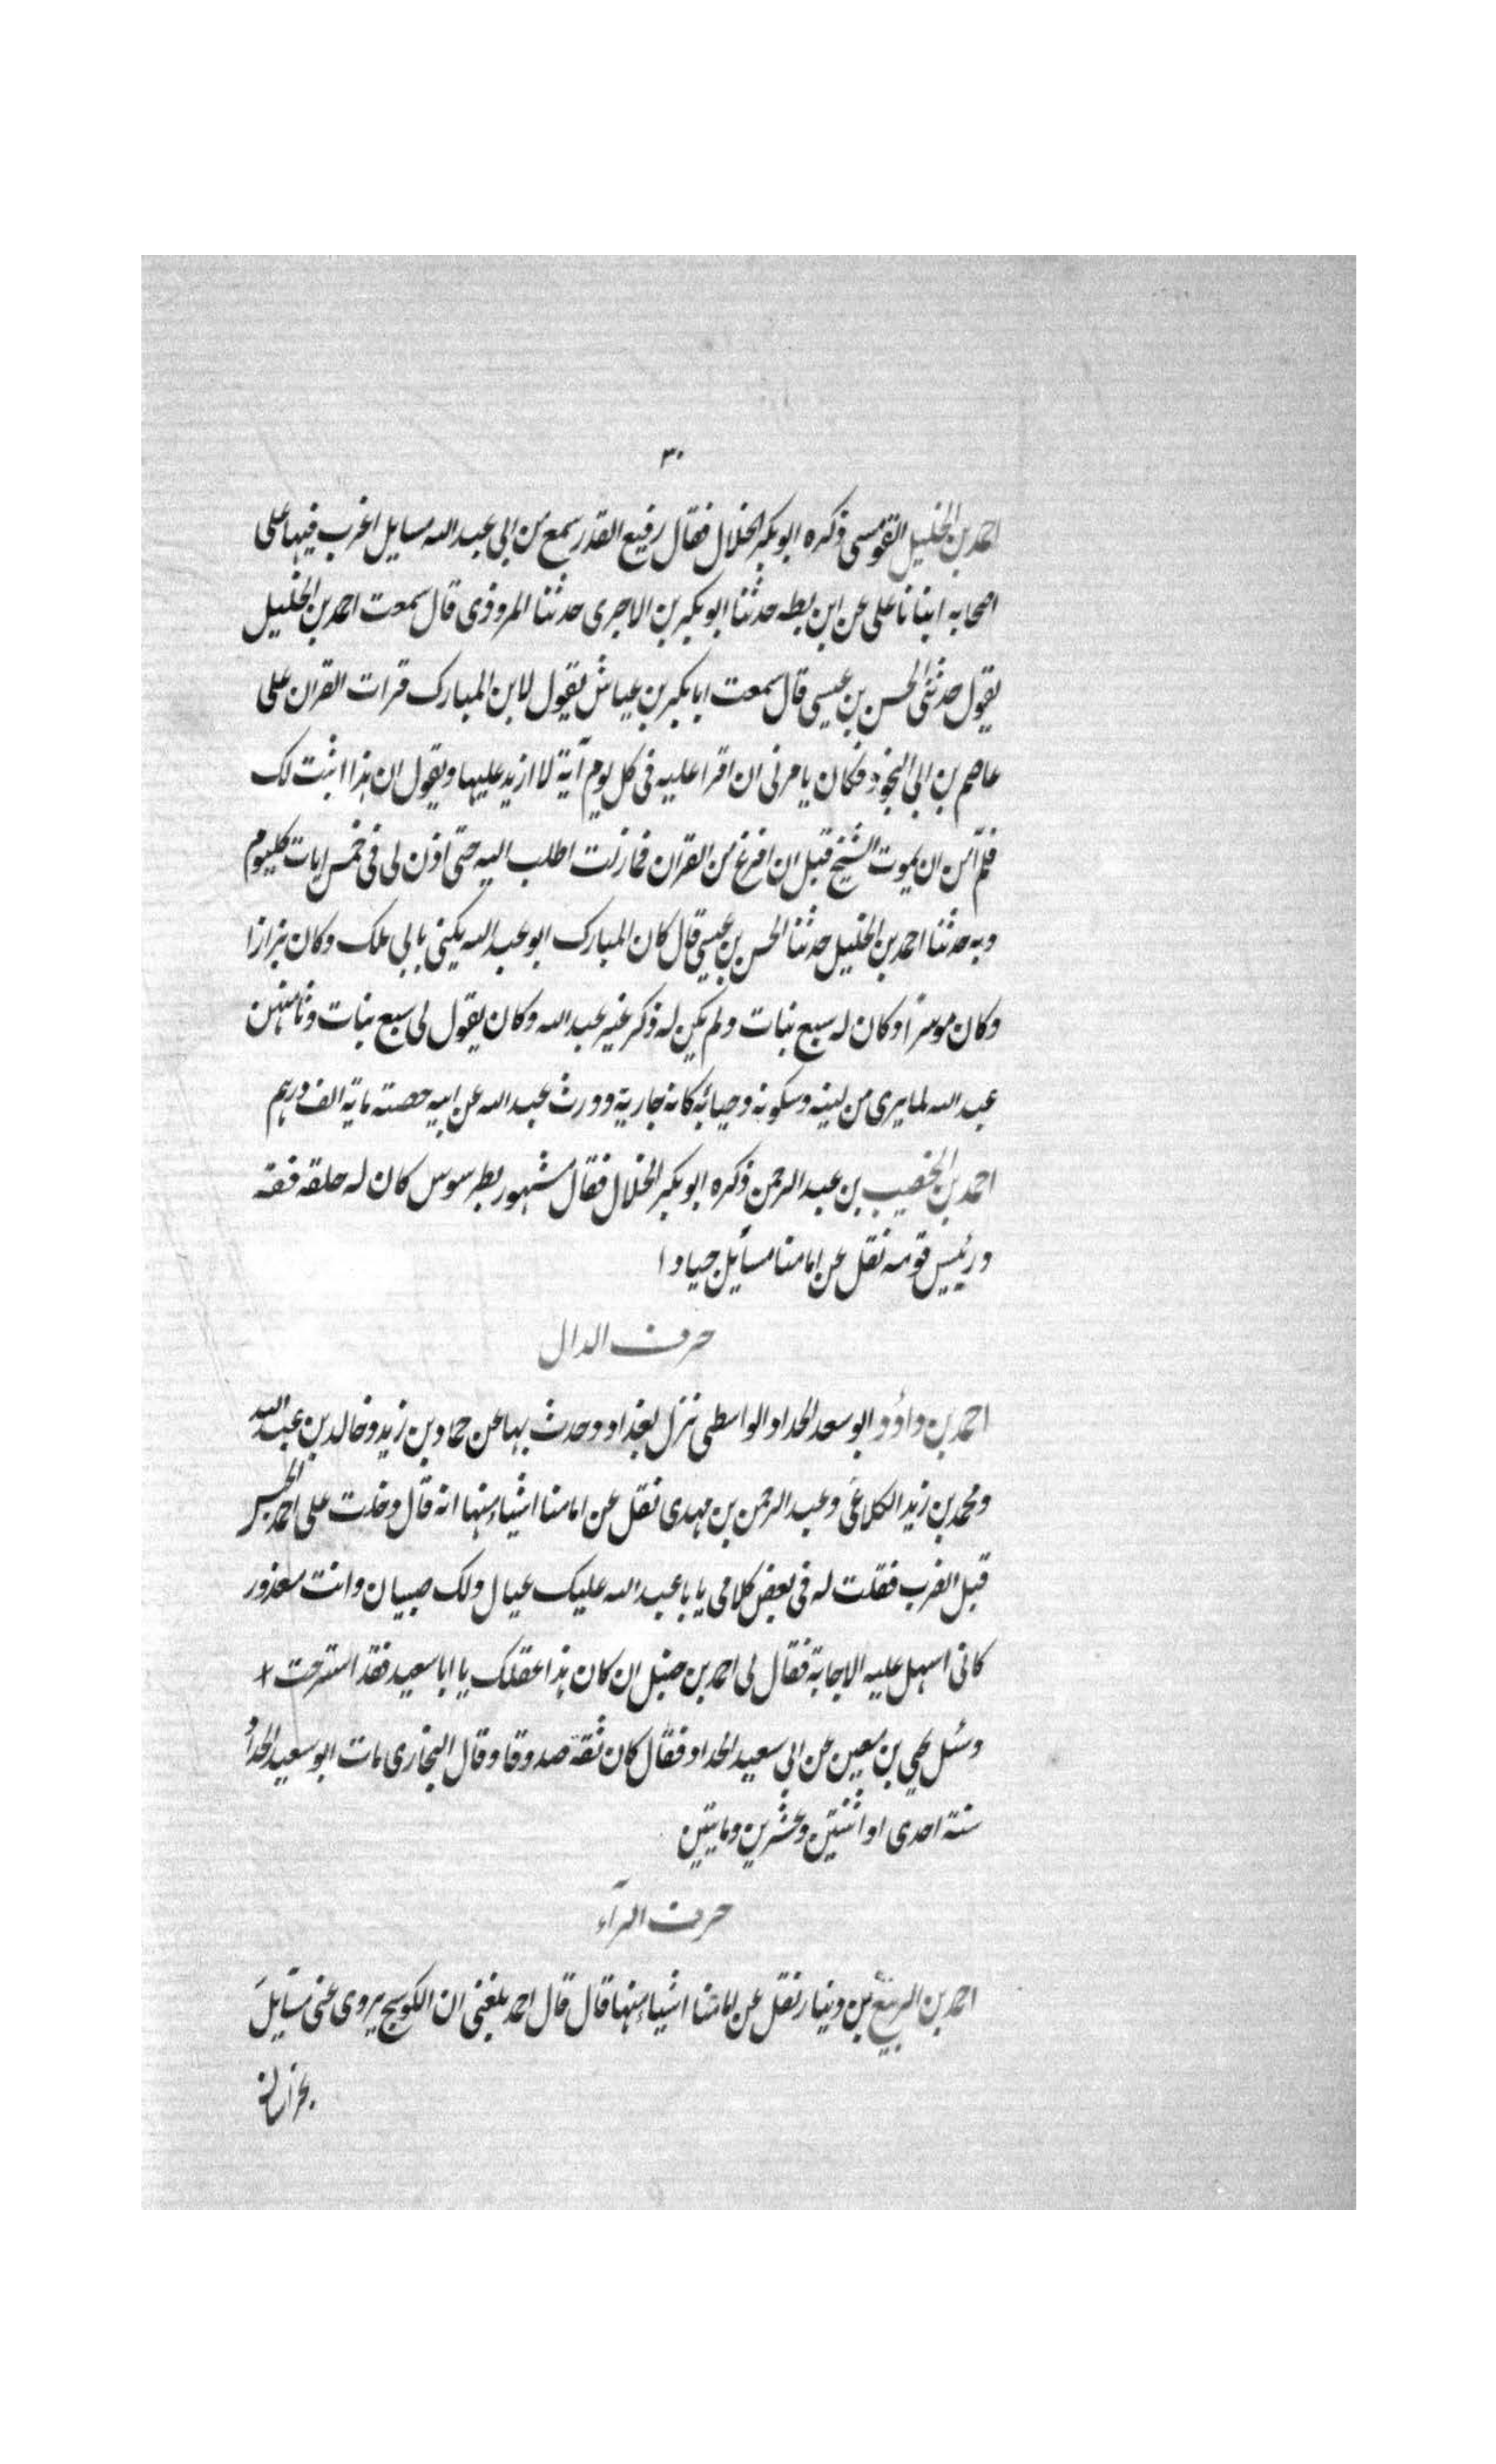 ٣٠
احمد بن الخليل القومسى ذكره ابو بكر الخلال فقال رفيع القدر سمع من ابى عبد الله مسايل اغرب فيها على
اصحابه انبانا على عن ابن بطه حدثنا ابو بكر بن الاجرى حدثنا المروذى قال سمعت احمد بن الخليل
يقول حدثنى الحسن بن عيسى قال سمعت ابا بكر بن عياش يقول لابن المبارك قرات القران على
عاصم بن ابى النجود فكان يامرنى ان اقرا عليه فى كل يوم آية لا ازيد عليها ويقول ان هذا اثبت لك
فلم آمن ان يموت الشيخ قبل ان افرغ من القران فمازلت اطلب اليه حتى اذن لى فى خمس ايات كليوم
وبه حدثنا احمد بن الخليل حدثنا الحسن بن عيسى قال كان المبارك ابو عبد الله يكنى بابى ملك وكان بزازا
وكان موسرا وكان له سبع بنات ولم يكن له ذكر غير عبد الله وكان يقول لى سبع بنات وثامنهن
عبد الله لما يرى من لينه وسكونه وحيائه كانه جارية وورث عبد الله عن ابيه حصته ماية الف درهم
احمد بن الخصيب بن عبد الرحمن ذكره ابو بكر الخلال فقال مشهور بطرسوس كان له حلقه فقه
ورئيس قومه نقل عن امامنا مسائل جيادا
حرف الدال
احمد بن داؤد ابو سعد الحداد الواسطى نزل بغداد وحدث بها عن حماد بن زيد وخالد بن عبد الله
ومحمد بن زيد الكلاعى وعبد الرحمن بن مهدى نقل عن امامنا اشياء منها انه قال دخلت على احمد الحبس
قبل الضرب فقلت له فى بعض كلامى يا با عبد الله عليك عيال ولك صبيان وانت معذور
كانى اسهل عليه الاجابة فقال لى احمد بن حنبل ان كان هذا عقلك يا ابا سعيد فقد استرحت
وسئل يحيى بن معين عن ابى سعيد الحداد فقال كان ثقة صدوقا وقال البخارى مات ابو سعيد الحداد
سنة احدى او اثنتين وعشرين ومايتين
حرف الرآء
احمد بن الربيع بن دينار نقل عن امامنا اشياء منها قال قال احمد بلغنى ان الكوسج يروى عنى مسايل
بخراسان